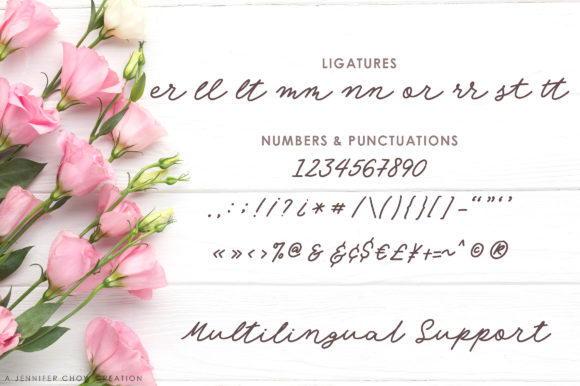 LIGATURES
er ll lt mm nn or rr st tt
NUMBERS & PUNCTUATIONS
1234567890
.,:;!¡?¿*#/\(){}[]-“”‘’
«»‹›%@&&¢$€£¥+=~^©®
Multilingual Support
A JENNIFER CHOW CREATION